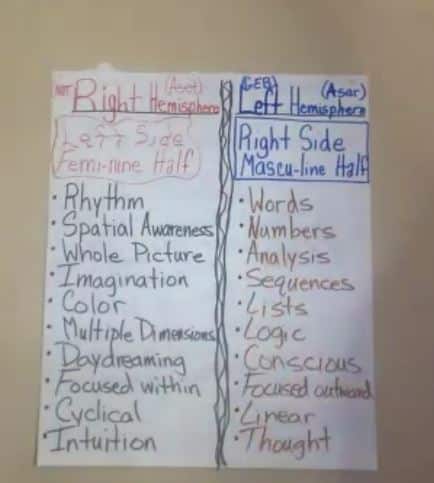 NUT Right Hemisphere (Aset)
Left Side
Femi-nine Half
• Rhythm
• Spatial Awareness
• Whole Picture
• Imagination
• Color
• Multiple Dimensions
• Daydreaming
• Focused within
• Cyclical
• Intuition
(GEB) Left Hemisphere (Asar)
Right Side
Mascu-line Half
• Words
• Numbers
• Analysis
• Sequences
• Lists
• Logic
• Conscious
• Focused outward
• Linear
• Thought